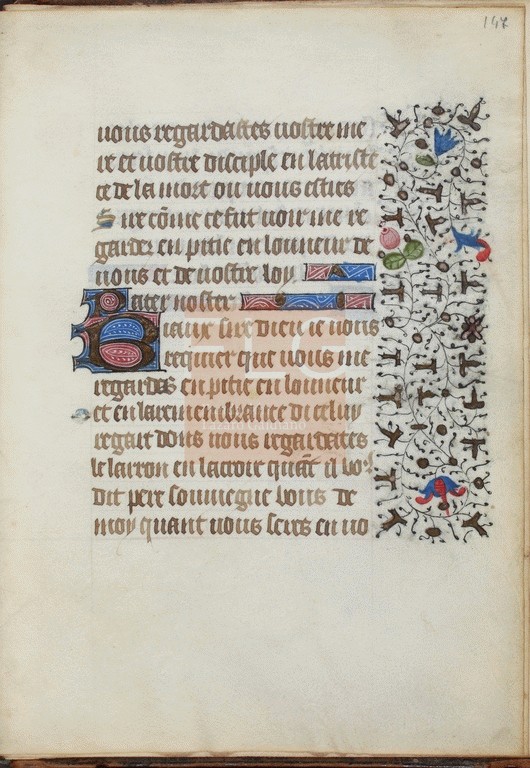 147
vous regardastes vostre me
re et vostre disciple en la triste
ce de la mort ou vous esties
Sire cōme ce fut voir me re
garder en pitie en lonneur de
vous et de vostre loy
Pater noster
Biaux sire dieu ie vous
requier que vous me
regardes en pitie en lonneur
et en la remembrance du celuy
regart dont vous regardastes
le larron en la croix quāt il vos
dit pere souviegne vous de
moy quant vous seres en vo
Lázaro Galdiano